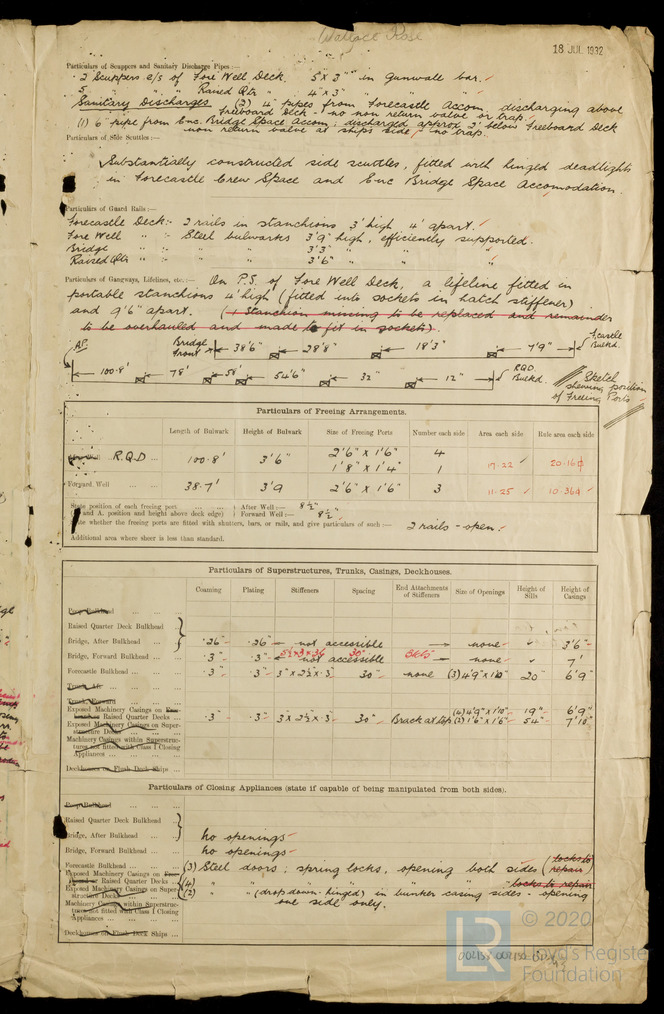 Wallace Rose
18 JUL 1932
Particulars of Scuppers and Sanitary Discharge Pipes :—
2 Scuppers e/s of Fore Well Deck. 5" x 3" in Gunwale bar.
5 " " Raised Qtr " 4" x 3" " " "
Sanitary Discharges (2) 4" pipes from Forecastle Accom. discharging above
Freeboard Deck - no non return valve or trap.
(1) 6" pipe from Enc. Bridge Space Accom. discharged approx 2' below Freeboard Deck
non return valve at ships side - no trap.
Particulars of Side Scuttles :—
Substantially constructed side scuttles, fitted with hinged deadlights
in Forecastle Crew Space and Enc Bridge Space Accomodation.
Particulars of Guard Rails :—
Forecastle Deck:- 2 rails in stanchions 3' high 4' apart.
Fore Well " :- Steel bulwarks 3'9" high, efficiently supported.
Bridge " :- " " 3'3" " " "
Raised Qtr " :- " " 3'6" " " "
Particulars of Gangways, Lifelines, etc. :— On P.S. of Fore Well Deck, a lifeline fitted in
portable stanchions 4' high (fitted into sockets in hatch stiffener)
and 9'6" apart. (1 Stanchion missing to be replaced and remainder
to be overhauled and made to fit in sockets).
AP. Bridge Front 38'6" 28'8" 18'3" 7'9" F'castle Bulkd.
100·8' 78' 58' 54'6" 32' 12" RQD. Bulkd.
Sketch
shewing position
of Freeing Ports
Particulars of Freeing Arrangements.
Length of Bulwark Height of Bulwark Size of Freeing Ports Number each side Area each side Rule area each side
R.Q.D 100·8' 3'6" 2'6" x 1'6" 4
1'8" x 1'4" 1 17·22 20·16
Forward Well 38·7' 3'9 2'6" x 1'6" 3 11·25 10·36
State position of each freeing port After Well :— 8½"
and A. position and height above deck edge) Forward Well :— 8½"
State whether the freeing ports are fitted with shutters, bars, or rails, and give particulars of such :— 2 rails - open.
Additional area where sheer is less than standard.
Particulars of Superstructures, Trunks, Casings, Deckhouses.
Coaming Plating Stiffeners Spacing End Attachments of Stiffeners Size of Openings Height of Sills Height of Casings
Poop Bulkhead
Raised Quarter Deck Bulkhead
Bridge, After Bulkhead ·26" ·26" not accessible none 3'6"
Bridge, Forward Bulkhead ·3" ·3" not accessible none 7'
Forecastle Bulkhead ·3" ·3" 3" x 2½ x ·3 30" none (3) 4'9" x 1'10" 20" 6'9"
Trunk, Aft
Trunk, Forward
Exposed Machinery Casings on Free-
board or Raised Quarter Decks ·3" ·3" 3 x 2½ x ·3 30" Brack at top (4) 4'9" x 1'10" 19" 6'9"
Exposed Machinery Casings on Super-
structure Decks (2) 1'6" x 1'6" 54" 7'10"
Machinery Casings within Superstruc-
tures not fitted with Class I Closing
Appliances
Deckhouses on Flush Deck Ships
Particulars of Closing Appliances (state if capable of being manipulated from both sides).
Poop Bulkhead
Raised Quarter Deck Bulkhead
Bridge, After Bulkhead no openings
Bridge, Forward Bulkhead no openings
Forecastle Bulkhead (3) Steel doors; spring locks, opening both sides (locks to repair)
Exposed Machinery Casings on Free-
board or Raised Quarter Decks (4) " " " " " locks to repair
Exposed Machinery Casings on Super-
structure Decks (2) " " (drop down hinged) in bunker casing sides - opening
one side only.
Machinery Casings within Superstruc-
tures not fitted with Class I Closing
Appliances
Deckhouses on Flush Deck Ships
LR © 2020
Lloyd's Register
Foundation